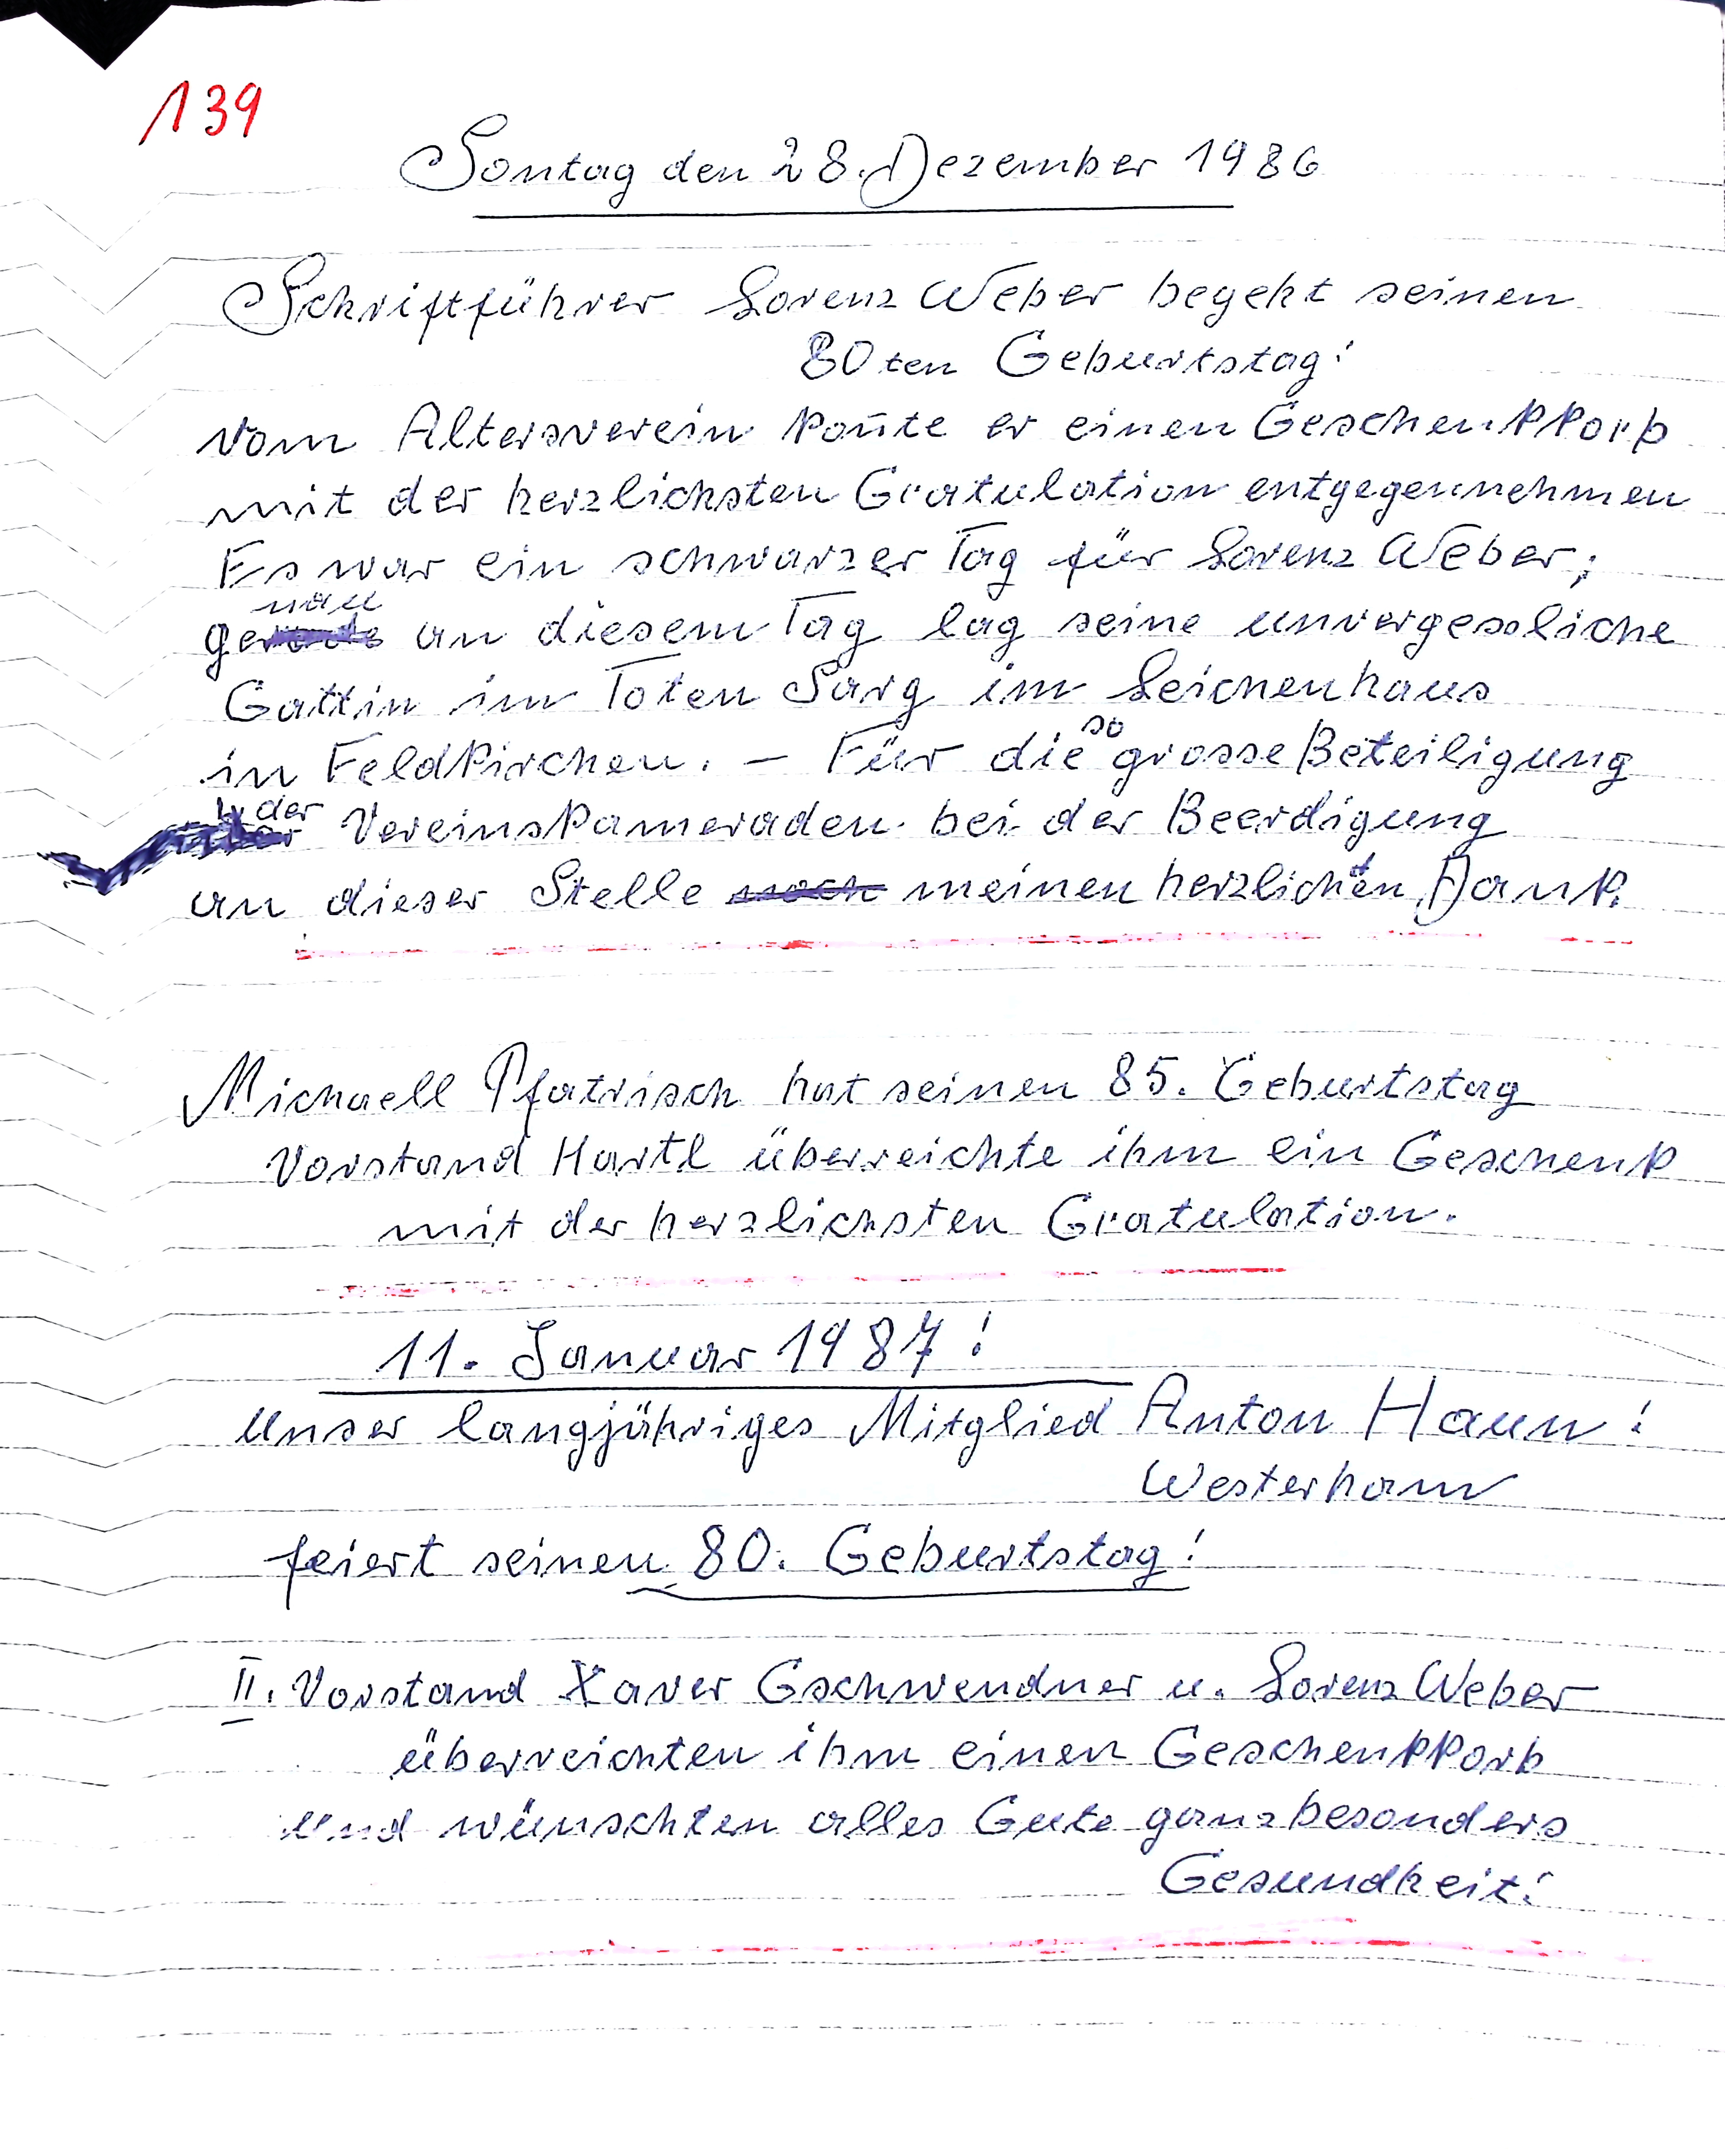 139
Sontag den 28. Dezember 1986
Schriftführer Lorenz Weber begeht seinen
80ten Geburtstag!
Vom Altersverein kon̄te er einen Geschenkkorb
mit der herzlichsten Gratulation entgegennehmen
Es war ein schwarzer Tag für Lorenz Weber;
genau an diesem Tag lag seine unvergessliche
Gattin im Toten Sarg im Leichenhaus
in Feldkirchen. – Für die so grosse Beteiligung
der Vereinskameraden bei der Beerdigung
an dieser Stelle meinen herzlichsten Dank.
Michaell Pfatrisch hat seinen 85. Geburtstag
Vorstand Hartl überreichte ihm ein Geschenk
mit der herzlichsten Gratulation.
11. Januar 1987!
Unser langjähriges Mitglied Anton Haun!
Westerham
feiert seinen 80. Geburtstag!
II. Vorstand Xaver Gschwendner u. Lorenz Weber
überreichten ihm einen Geschenkkorb
und wünschten alles Gute ganz besonders
Gesundheit!